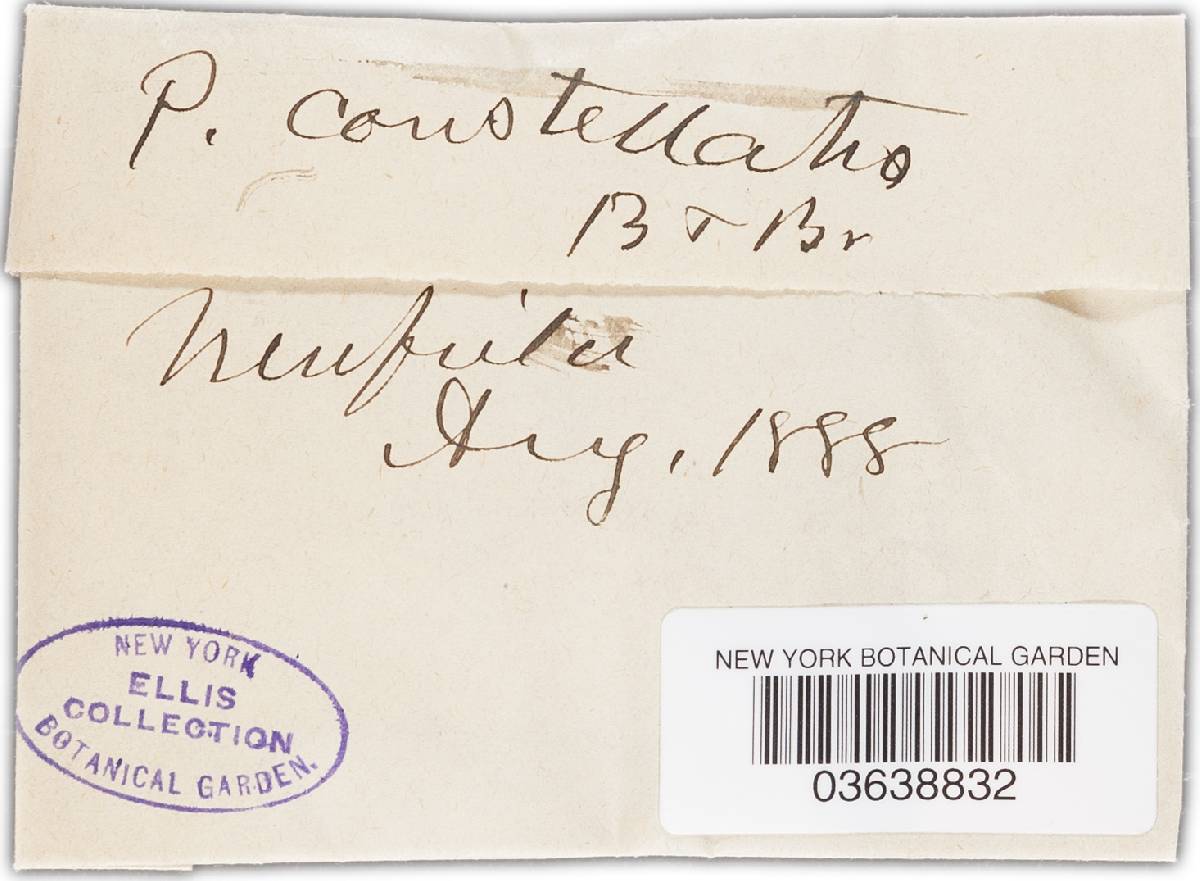 P. constellatio
B & Br
Newfield
Aug. 1888
NEW YORK
ELLIS
COLLECTION
BOTANICAL GARDEN.
NEW YORK BOTANICAL GARDEN
03638832